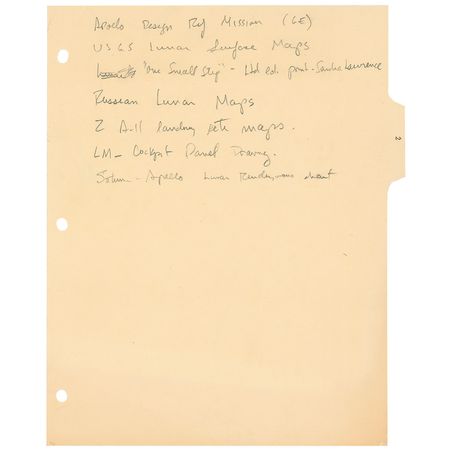 Apollo Design Ref Mission (GE)
USGS Lunar Surface Maps
"One Small Step" - Ltd edi. print - Sandra Lawrence
Russian Lunar Maps
2 A-11 landing site maps.
LM - Cockpit Panel Drawing.
- Apollo Lunar Rendezvous chart
2